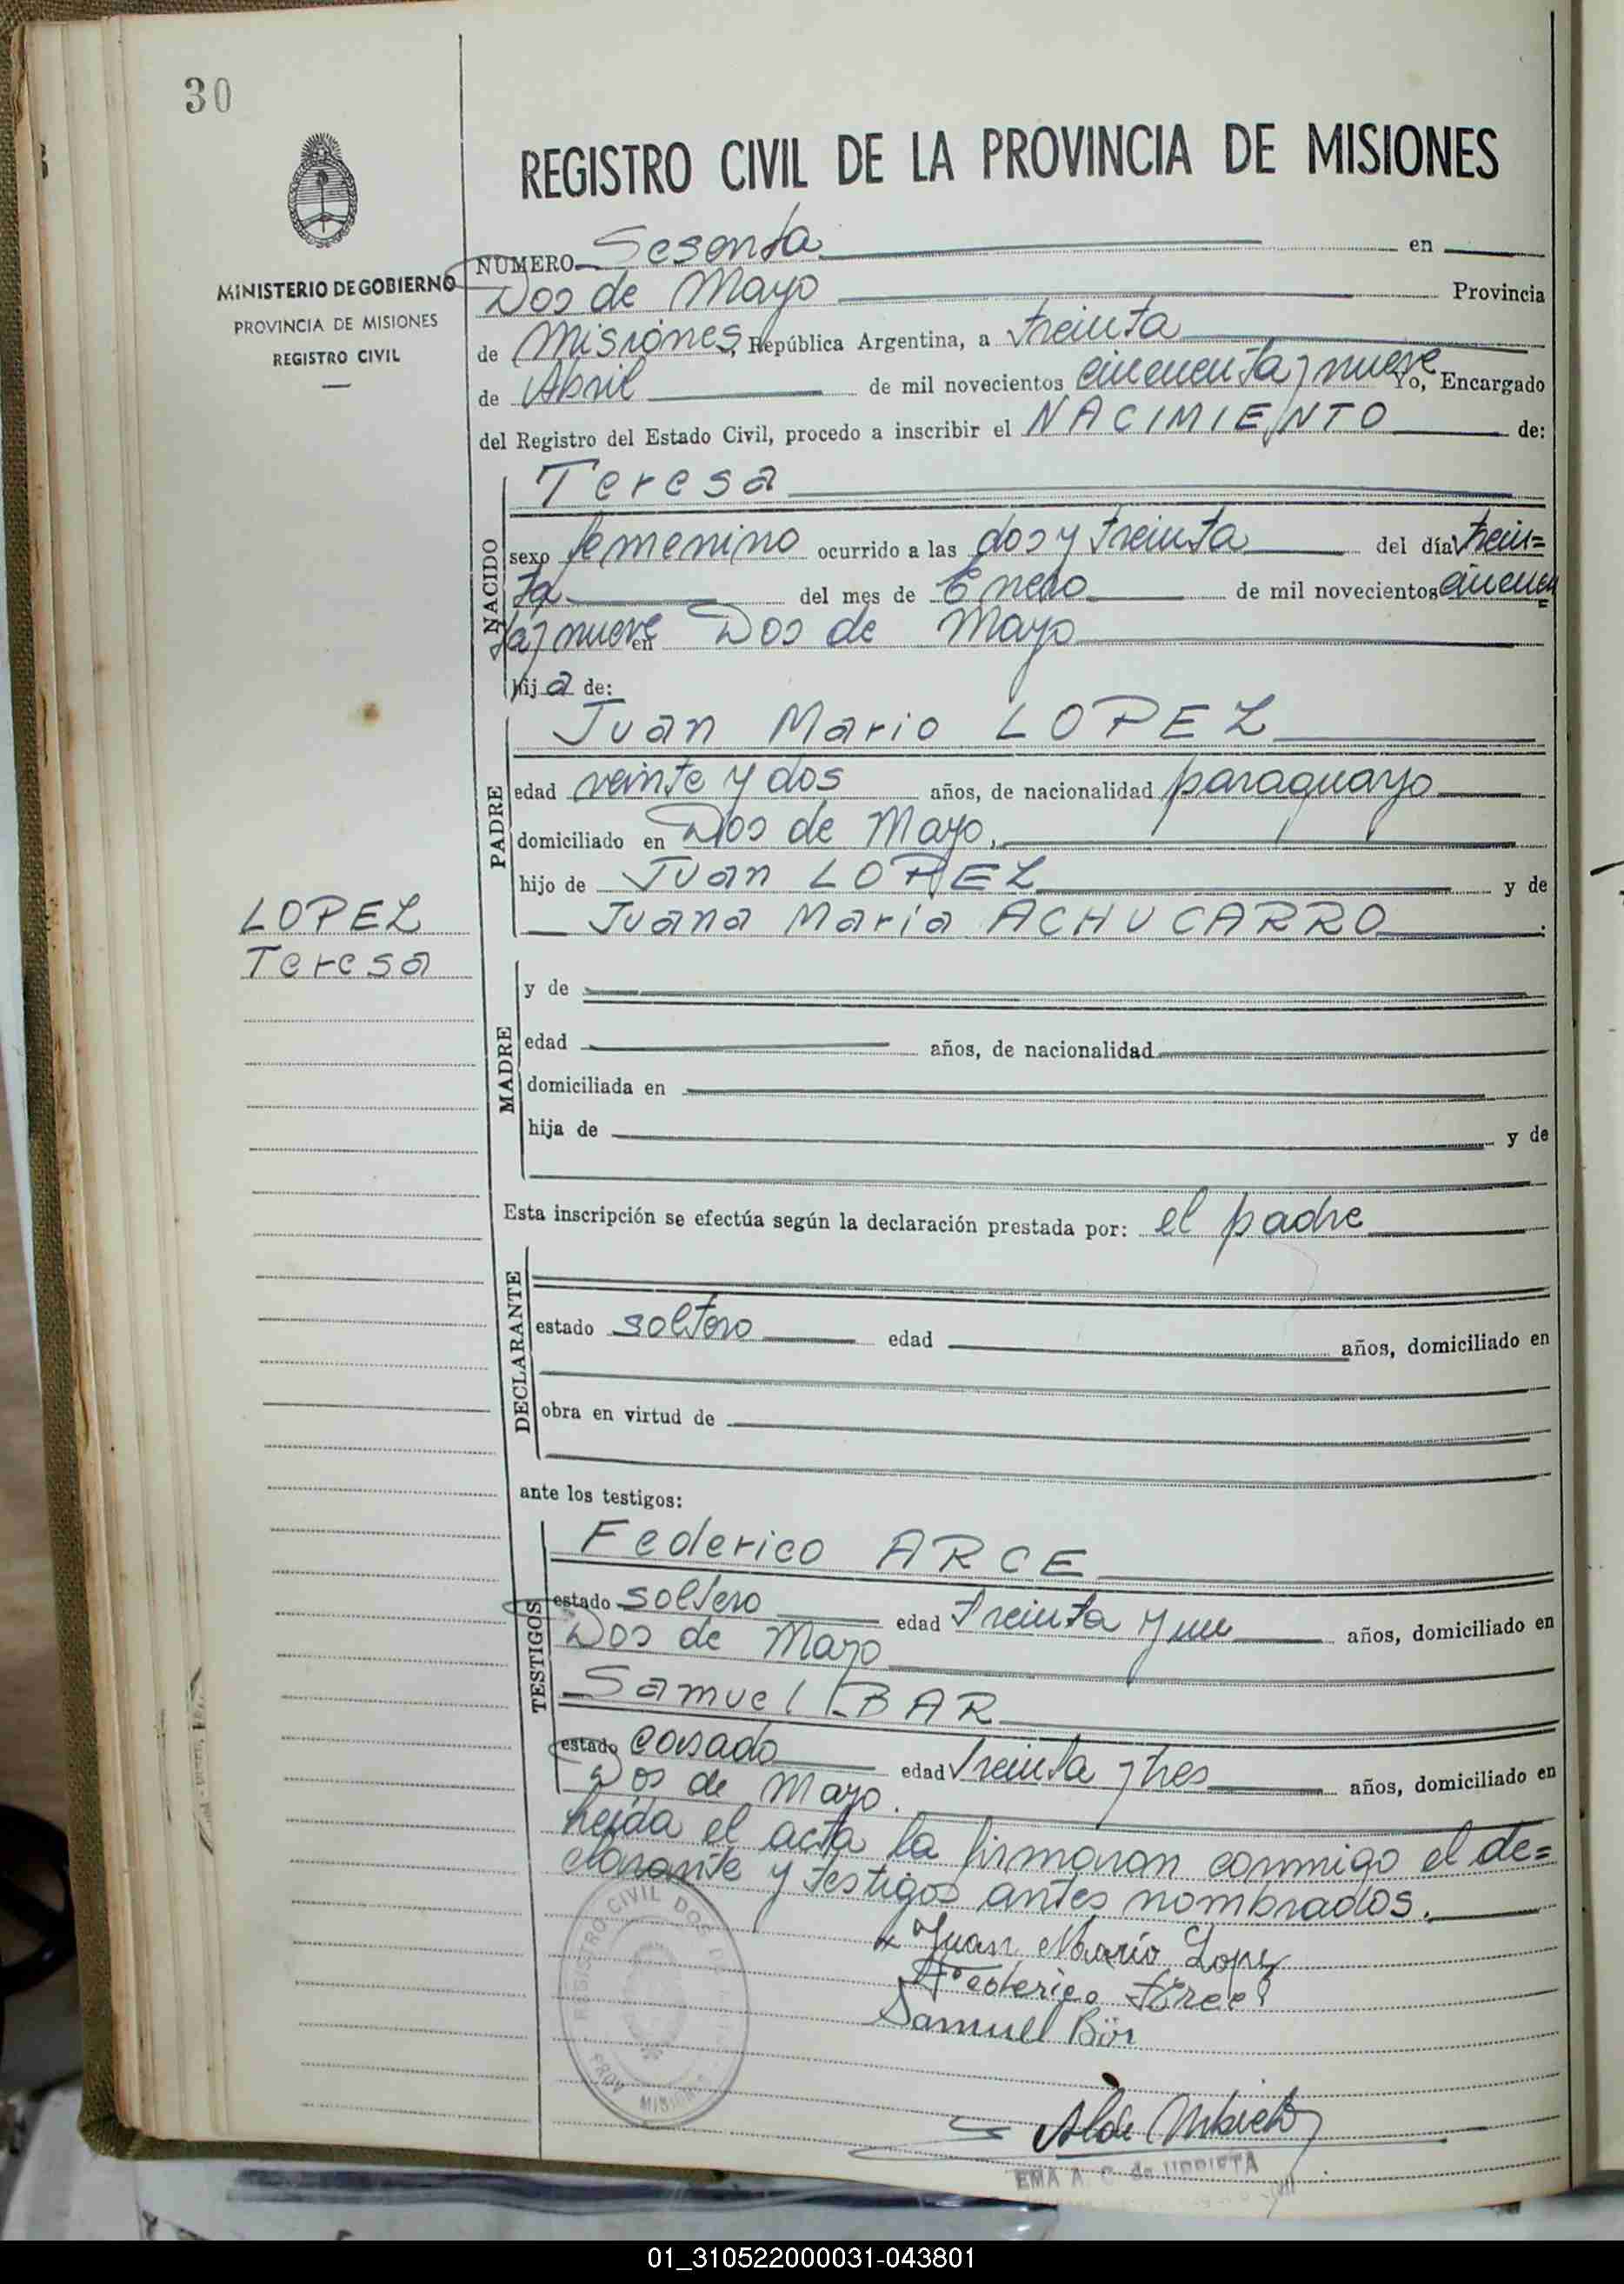 30
REGISTRO CIVIL DE LA PROVINCIA DE MISIONES
MINISTERIO DE GOBIERNO
PROVINCIA DE MISIONES
REGISTRO CIVIL
NUMERO Sesenta en
Dos de Mayo Provincia
de Misiones, República Argentina, a treinta
de Abril de mil novecientos cincuenta y nueve Yo, Encargado
del Registro del Estado Civil, procedo a inscribir el NACIMIENTO de:
NACIDO
Teresa
sexo femenino ocurrido a las dos y treinta del día trein=
ta del mes de Enero de mil novecientos cincuen
ta y nueve en Dos de Mayo
hija de:
PADRE
Juan Mario LOPEZ
edad veinte y dos años, de nacionalidad paraguayo
domiciliado en Dos de Mayo,
hijo de Juan LOPEZ y de
Juana Maria ACHUCARRO.
LOPEZ
Teresa
MADRE
y de
edad años, de nacionalidad
domiciliada en
hija de y de
Esta inscripción se efectúa según la declaración prestada por: el padre
DECLARANTE
estado soltero edad años, domiciliado en
obra en virtud de
ante los testigos:
TESTIGOS
Federico ARCE
estado soltero edad treinta y un años, domiciliado en
Dos de Mayo
Samuel BAR
estado casado edad treinta y tres años, domiciliado en
Dos de Mayo.
Leída el acta la firmaron conmigo el de=
clarante y testigos antes nombrados.
Juan Mario Lopez
Federico Arce
Samuel Bär
REGISTRO CIVIL DOS DE
PROV. MISIONES
EMA A. C. de URRIETA
01_310522000031-043801